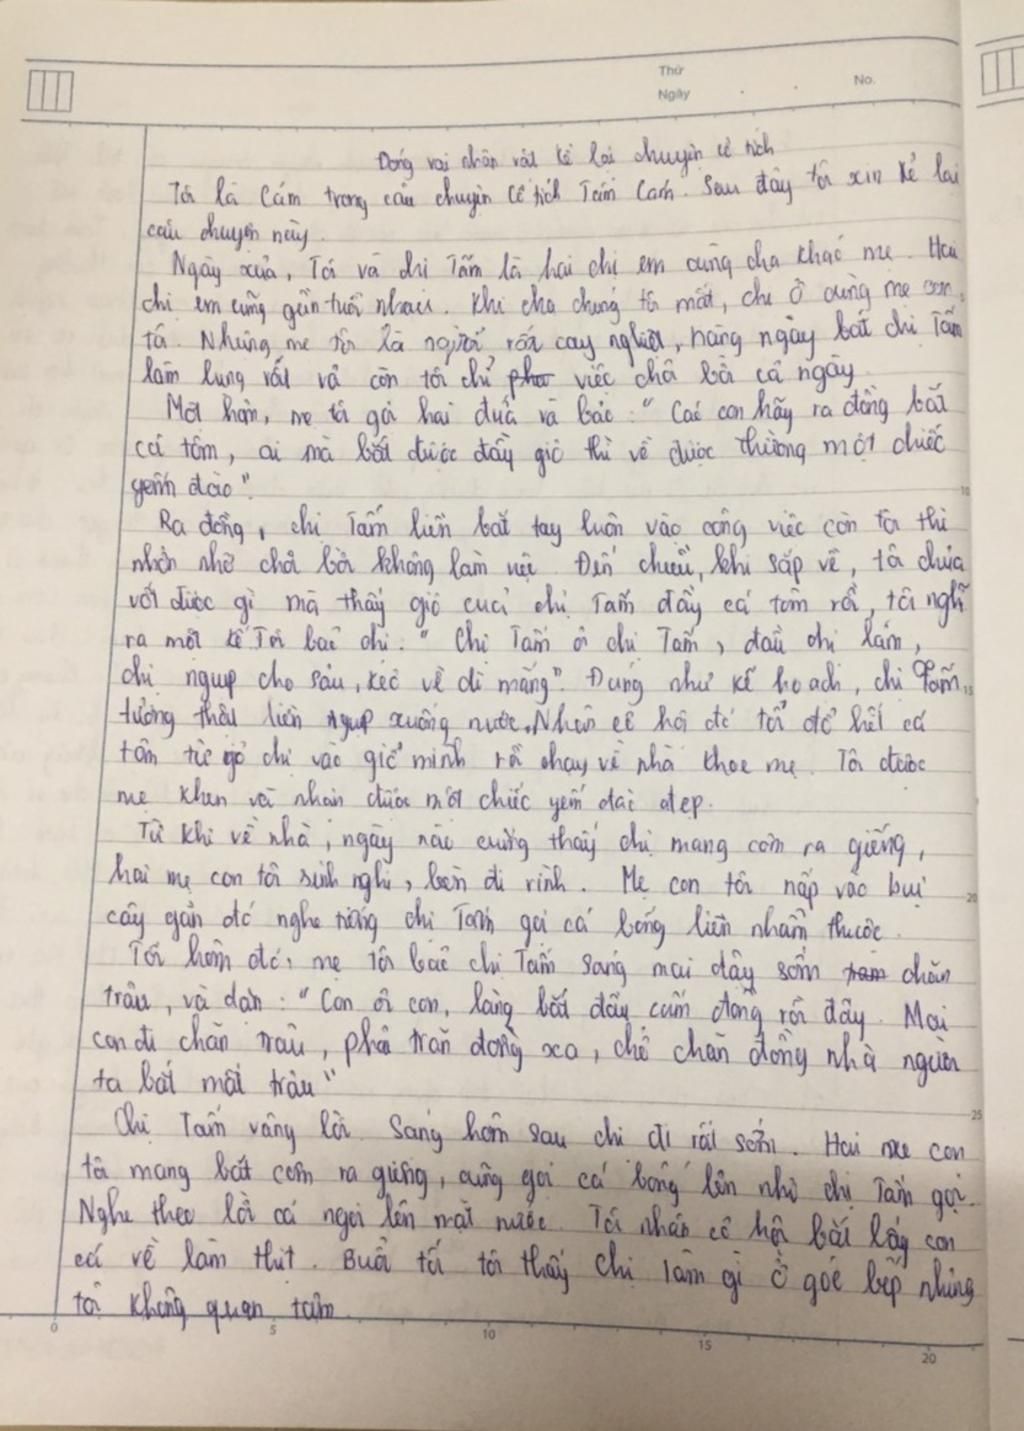 Thứ
Ngày
No.
Đóng vai nhân vật kể lại chuyện cổ tích
Tôi là Cám trong câu chuyện cổ tích Tấm Cám. Sau đây tôi xin kể lại
câu chuyện này.
Ngày xưa, Tôi và chị Tấm là hai chị em cùng cha khác mẹ. Hai
chị em cũng gần tuổi nhau. Khi cha chúng tôi mất, chị ở cùng mẹ con
tôi. Nhưng mẹ tôi là người rất cay nghiệt, hàng ngày bắt chị Tấm
làm lụng vất vả còn tôi chỉ việc chơi bời cả ngày.
Một hôm, mẹ tôi gọi hai đứa và bảo: "Các con hãy ra đồng bắt
cá tôm, ai mà bắt được đầy giỏ thì về được thưởng một chiếc
yếm đào".
Ra đồng, chị Tấm liền bắt tay luôn vào công việc còn tôi thì
nhởn nhơ chơi bời không làm việc. Đến chiều, khi sắp về, tôi chưa
vớt được gì mà thấy giỏ của chị Tấm đầy cá tôm rồi, tôi nghĩ
ra một kế Tôi bảo chị: "Chị Tấm ơi chị Tấm, đầu chị lấm,
chị ngụp cho sâu, kẻo về dì mắng". Đúng như kế hoạch, chị Tấm
tưởng thật liền ngụp xuống nước. Nhân cơ hội đó tôi đổ hết cá
tôm từ giỏ chị vào giỏ mình rồi chạy về nhà khoe mẹ. Tôi được
mẹ khen và nhận được một chiếc yếm đào đẹp.
Từ khi về nhà, ngày nào cũng thấy chị mang cơm ra giếng,
hai mẹ con tôi sinh nghi, bèn đi rình. Mẹ con tôi nấp vào bụi
cây gần đó nghe tiếng chị Tấm gọi cá bống liền nhẩm thuộc.
Tối hôm đó, mẹ tôi bảo chị Tấm sáng mai dậy sớm chăn
trâu, và dặn: "Con ơi con, làng bắt đầu cấm đồng rồi đấy. Mai
con đi chăn trâu, phải trăn đồng xa, chớ chăn đồng nhà người
ta bắt mất trâu"
Chị Tấm vâng lời. Sáng hôm sau chị đi rất sớm. Hai mẹ con
tôi mang bát cơm ra giếng, cũng gọi cá bống lên như chị Tấm gọi.
Nghe theo lời cá ngoi lên mặt nước. Tôi nhân cơ hội bắt lấy con
cá về làm thịt. Buổi tối tôi thấy chị làm gì ở góc bếp nhưng
tôi không quan tâm.
0 5 10 15 20
10
15
20
25